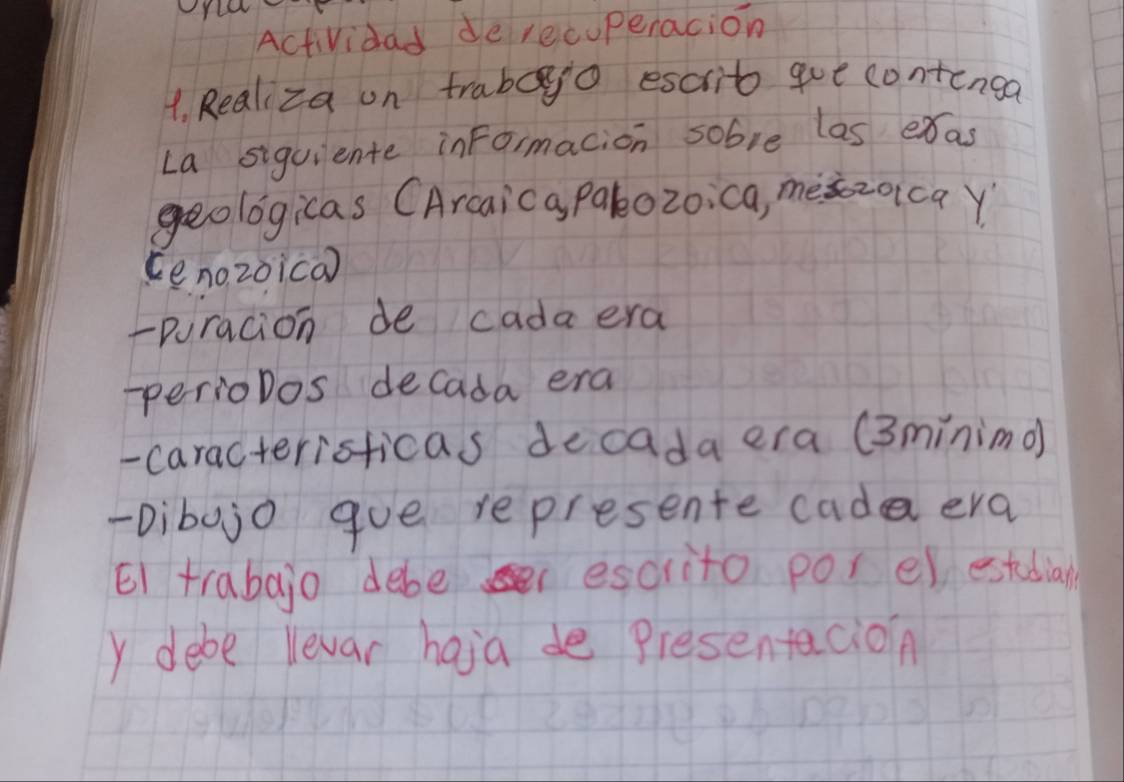 Actividad de recuperación
1. Realiza un trabajo escrito que contenga
La siguiente información sobre las eras
geológicas (Arcaica, Paleozoica, mesozoica y
Cenozoica)
-Duración de cada era
-perioDos de cada era
-características de cada era (3 mínimo)
-Dibujo que represente cada era
El trabajo debe ser escrito por el estudiante
y debe llevar hoja de Presentación